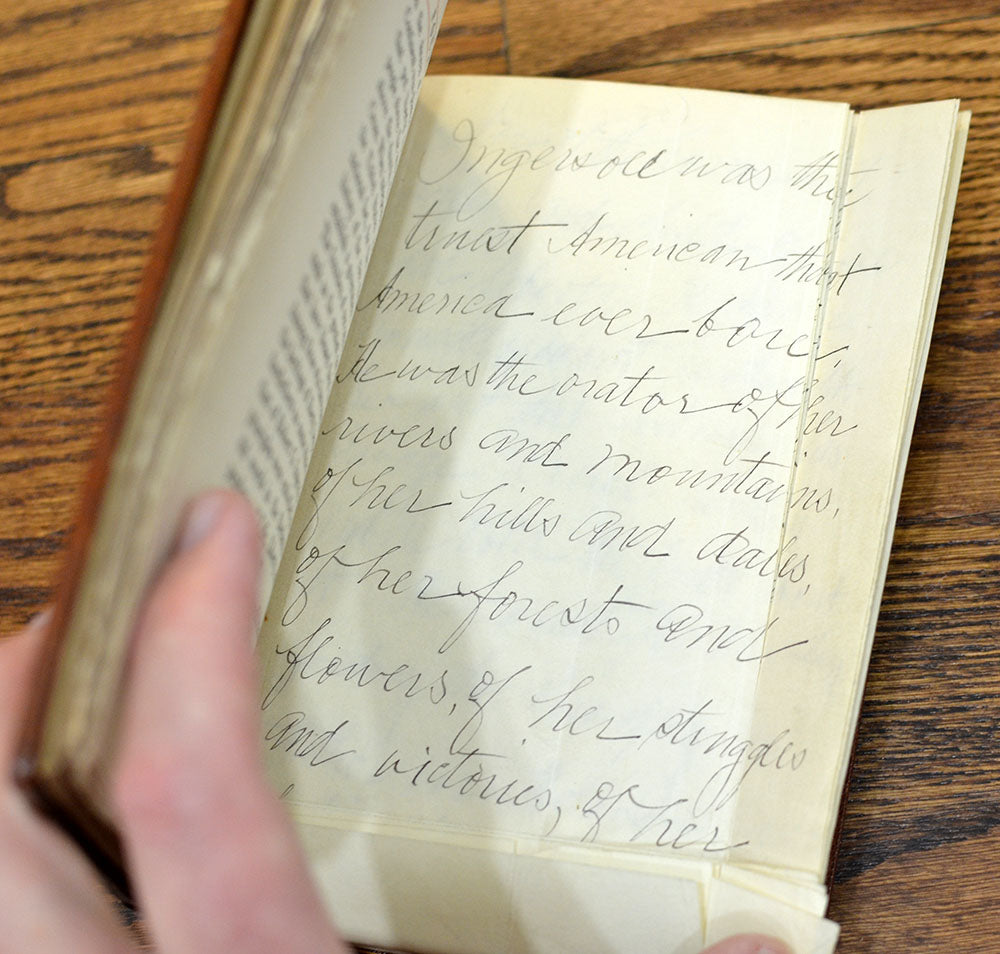 Ingersoll was the
truest American that
America ever bore,
He was the orator of her
rivers and mountains,
of her hills and dales,
of her forests and
flowers, of her struggles
and victories, of her